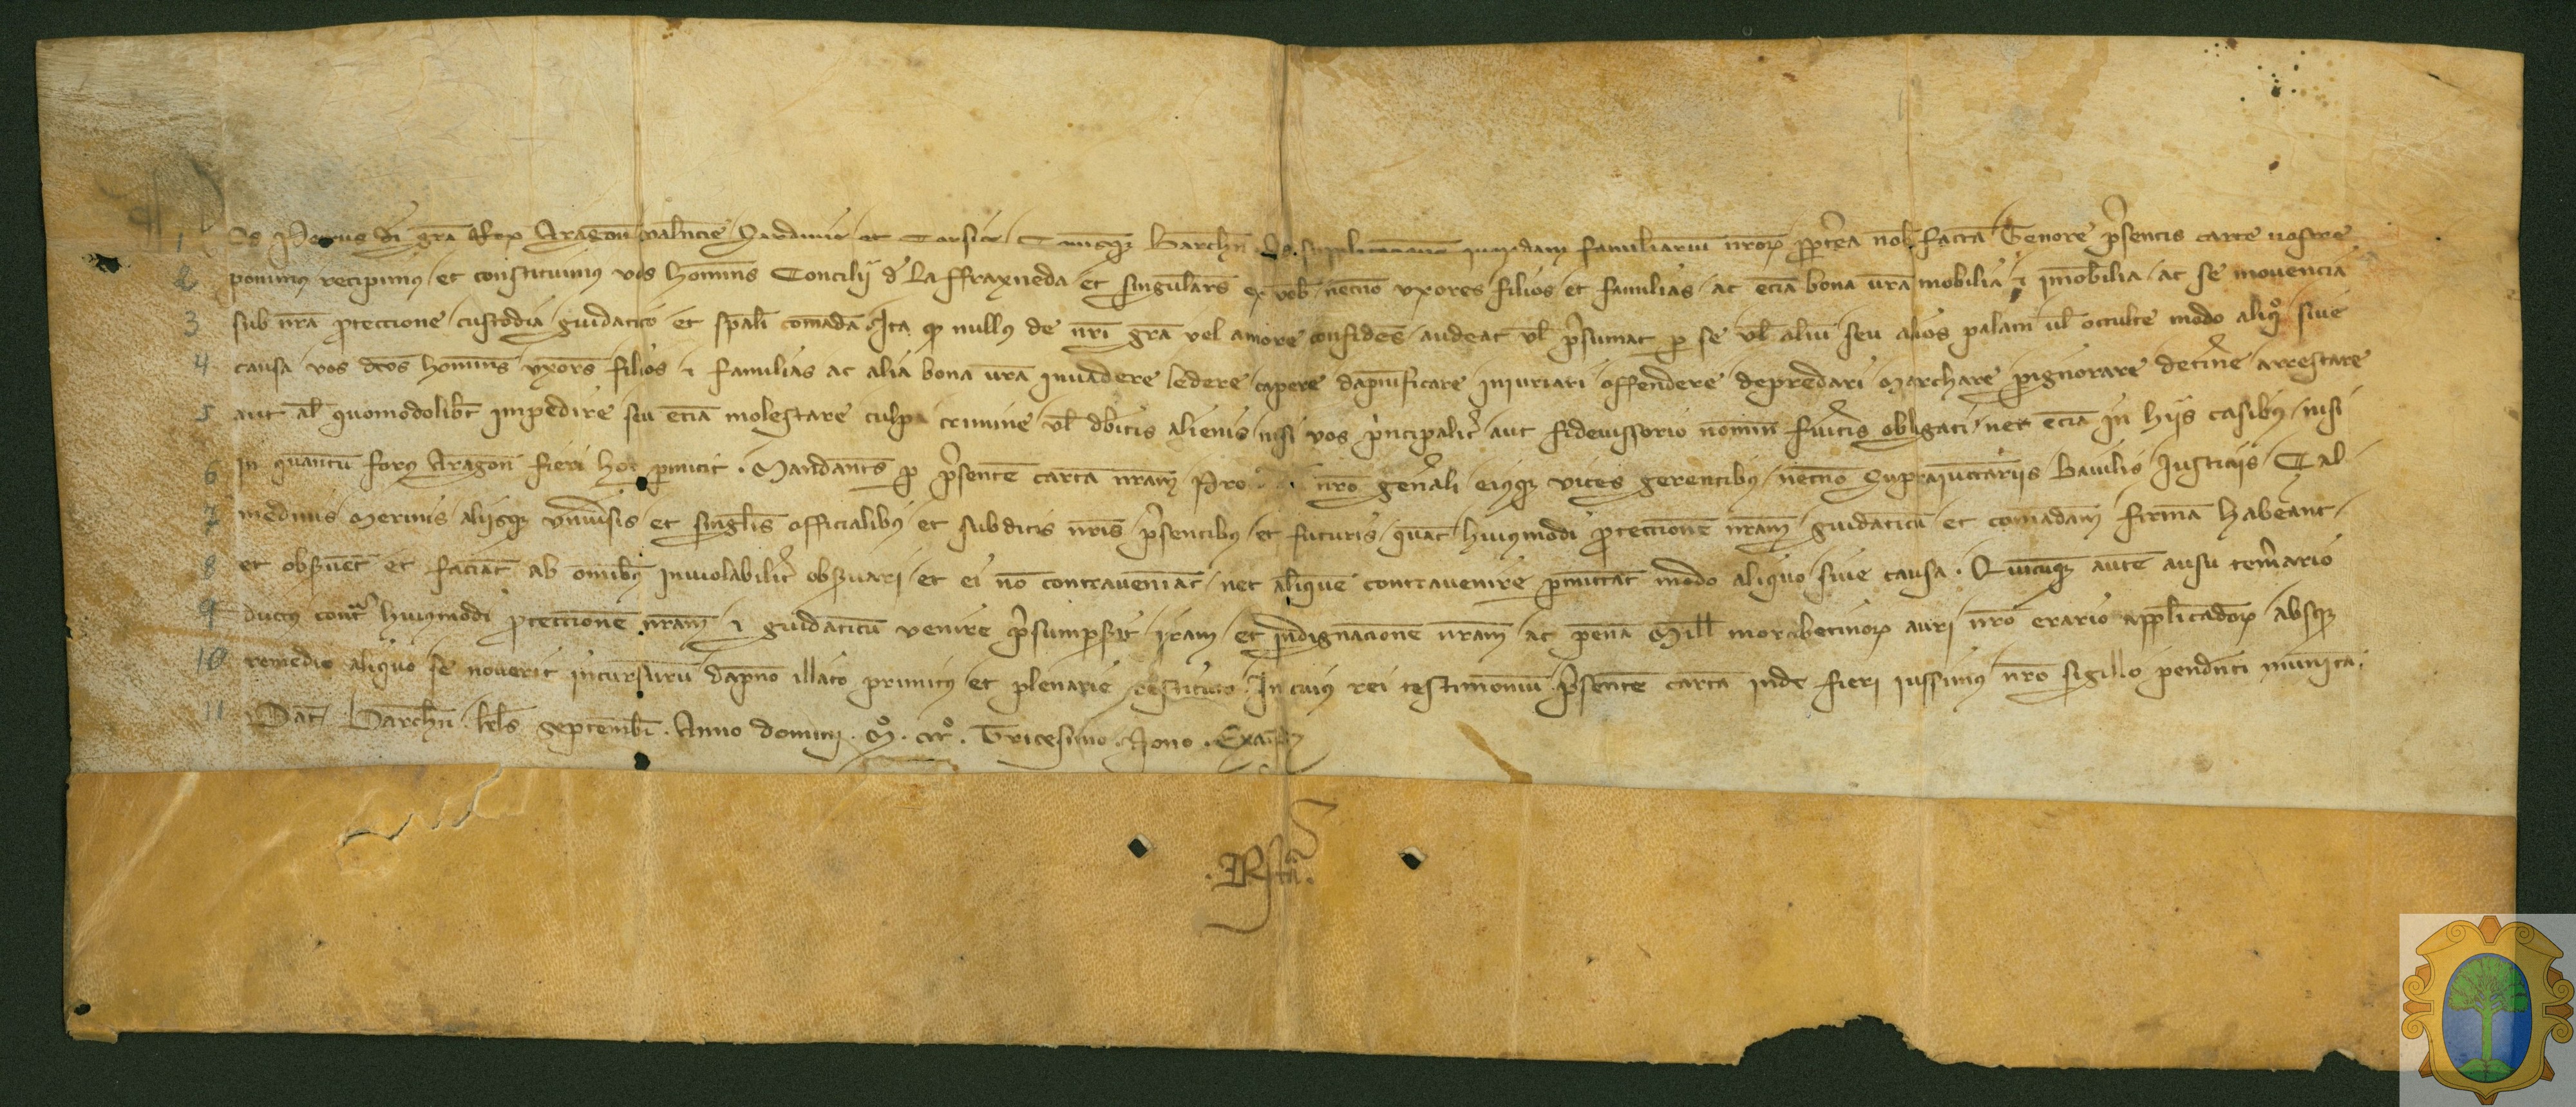 1 Os Petrus di gra Rex Aragon Valncie Sardinie et Corsice Comesq Barchn Ad supplicacionem quorudam familiarium nror pptea nob facta Tenore psentis carte nostre
2 ponimus recipimus et constituimus vos homins Concilij d La ffraxneda et singulars ex vob necno vxores filios et familias ac ecia bona vra mobilia & imobilia ac se movencia
3 sub nra pteccione custodia guidatico et spali comada Ita qp nullus de nri gra vel amore confides audeat vl psumat p se vl aliu seu alios palam vl occulte modo aliqo sive
4 causa vos dcos homins vxors filios & familias ac alia bona vra invadere ledere capere dapnificare iniuriari offendere depredari Marchare pignorare detinere arrestare
5 aut al quomodolibt impedire seu ecia molestare culpa crimine vl dbitis alienis nisi vos pncipalit aut fideiussorio nomin fuitis obligati nec ecia in hijs casibus nisi
6 in quantu forus Aragon fieri hoc pmittit . Mandants p psente carta nram Pro nro genali eiusq vices gerentibus necno Suprajunctarijs Baiulis Iusticijs Cal
7 medinis Merinis alijsq vnivsis et singlis officialibus et subditis nris psentibus et futuris quat huiusmodi pteccione nram guidaticu et comadam firma habeant
8 et obsvent et faciat ab omibus inviolabilit obsvari et ei no contraveniat nec alique contravenire pmittat modo aliquo sive causa . Quicuq aute ausu temario
9 ductus contra huiusmodi pteccione nram & guidaticu venire psumpsit iram et indignacione nram ac pena Mill morabetinor auri nro erario applicador absq
10 remedio aliquo se noverit incursuru dapno illato primitus et plenarie restituto In cuius rei testimoniu psente carta inde fieri iussimus nro sigillo pendnti munita.
11 Dat Barchn . kls Septembr . Anno domini . Mo . CCCo . Tricesimo Nono . Exaia
. Rsta .